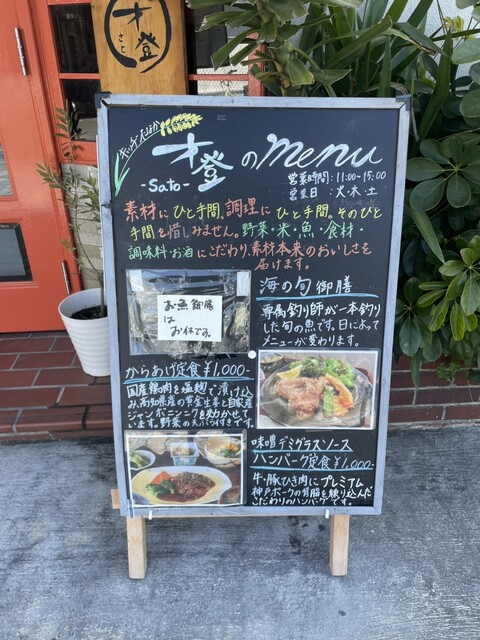 才登
さと
キッチンにほか
才登のmenu
-Sato-
営業時間:11:00-15:00
営業日:火・木・土
素材にひと手間。調理にひと手間。そのひと
手間を惜しみません。野菜・米・魚・食材・
調味料・お酒にこだわり、素材本来のおいしさを
届けます。
海の旬御膳
専属釣り師が一本釣り
した旬の魚です。日によって
メニューが変わります。
お魚御膳
は
お休です。
からあげ定食¥1,000-
国産鶏肉を塩麹で漬け込
み、高知県産の黄金生姜と自家産
ジャンボニンニクを効かせてい
ます。野菜の天ぷら付きです。
味噌デミグラスソース
ハンバーグ定食¥1,000-
牛・豚ひき肉にプレミアム
神戸ポークの背脂を練り込んだ
こだわりのハンバーグです。